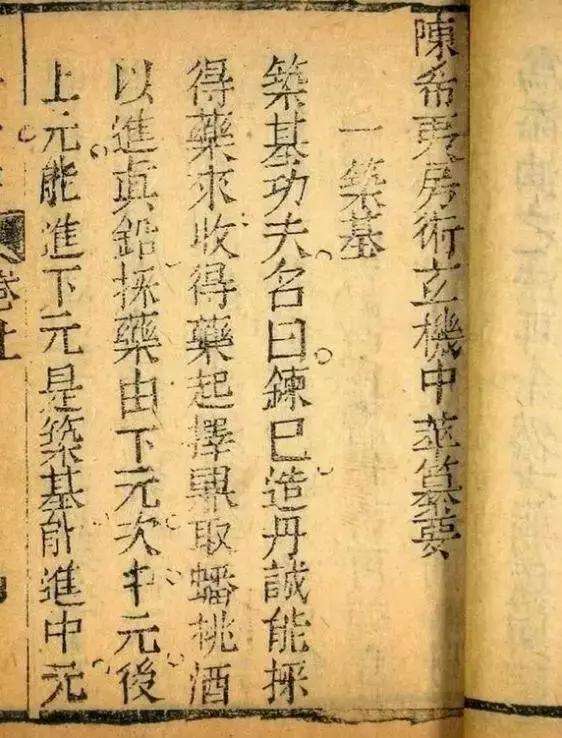 陳希夷房術玄機中萃纂要
一築基
築基功夫名曰鍊巳造丹誠能採
得藥來收得藥起擇鼎取蟠桃酒
以進眞鉛採藥由下元次中元後
上元能進下元是築基能進中元